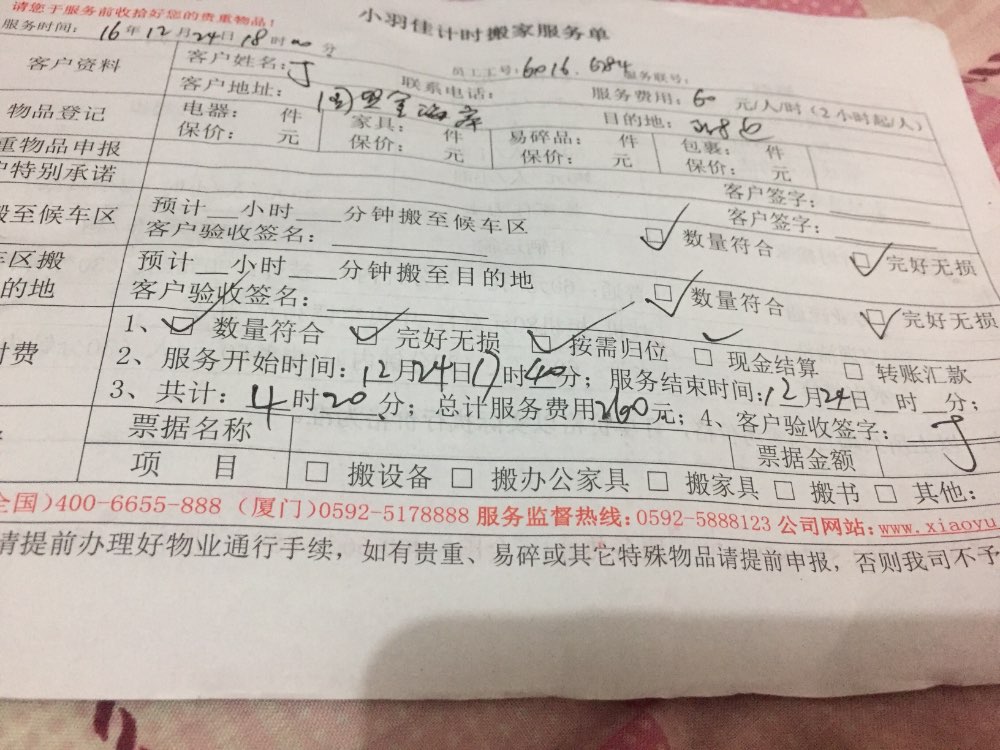 请您于服务前收拾好您的贵重物品！
小羽佳计时搬家服务单
服务时间： 16年12月24日18时00分
员工工号：6016.6784 服务联号：
客户资料 客户姓名：J 联系电话： 服务费用：60 元/人/时（2小时起/人）
客户地址： 目的地：
物品登记 电器： 件 家具： 件 易碎品： 件 包裹： 件
保价： 元 保价： 元 保价： 元 保价： 元
重物品申报 客户签字：
户特别承诺 客户签字：
搬至候车区 预计__小时___分钟搬至候车区 数量符合 完好无损
客户验收签名：
车区搬 预计__小时___分钟搬至目的地 数量符合 完好无损
的地 客户验收签名：
付费 1、☑数量符合 ☑完好无损 ☑按需归位 □现金结算 □转账汇款
2、服务开始时间：12月24日17时40分；服务结束时间：12月24日__时__分；
3、共计：4时20分；总计服务费用260元；4、客户验收签字：J
票据名称 票据金额
项 目 □搬设备 □搬办公家具 □搬家具 □搬书 □其他：
全国)400-6655-888 (厦门)0592-5178888 服务监督热线：0592-5888123 公司网站：www.xiaoyu
请提前办理好物业通行手续，如有贵重、易碎或其它特殊物品请提前申报，否则我司不予